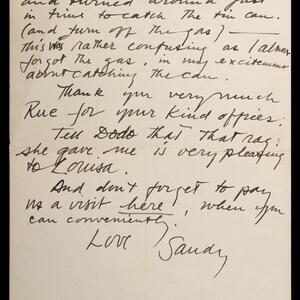 and turned around just
in time to catch the tin can.
(and turn off the gas) —
this was rather confusing as I almost
forgot the gas, in my excitement
about catching the can.
Thank you very much
Rue for your kind offices.
Tell Dodo that that rag
she gave me is very pleasing
to Louisa.
And don't forget to pay
us a visit here, when you
can conveniently.
Love Sandy